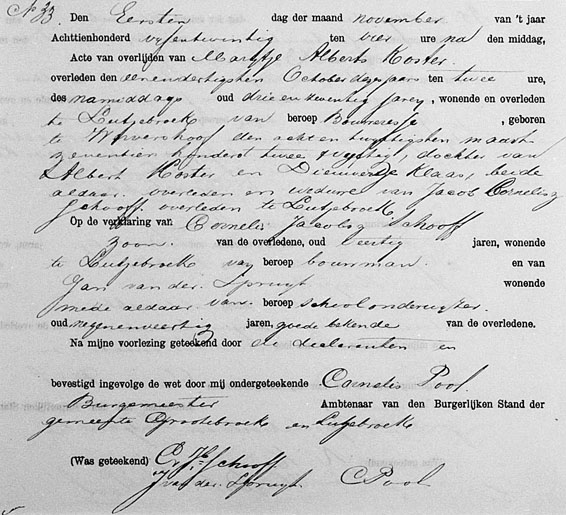 No 33. Den Eersten dag der maand november van 't jaar
Achttienhonderd vyfentwintig ten vier ure na den middag,
Acte van overlijden van Martje Alberts Koster.
overleden den eenendertigsten October dezes jaars ten twee ure,
des namiddags oud drie en zeventig jaren, wonende en overleden
te Lutjebroek van beroep Bouwresse, geboren
te Wervershoof den acht en twintigsten maart
zeventien honderd twee & vyftig, dochter van
Albert Koster en Dieuwer Klaas, beide
aldaar overleden en weduwe van Jacob Cornelisz
Schooff overleden te Lutjebroek
Op de verklaring van Cornelis Jacobsz Schooff
zoon. van de overledene, oud veertig jaren, wonende
te Lutjebroek van beroep bouwman. en van
Jan van der Spruyt wonende
mede aldaar van beroep schoolonderwyzer.
oud negenenveertig jaren, goede bekende van de overledene.
Na mijne voorlezing geteekend door de declaranten en
bevestigd ingevolge de wet door mij ondergeteekende Cornelis Pool
Burgemeester Ambtenaar van den Burgerlijken Stand der
gemeente Grootebroek en Lutjebroek
(Was geteekend) Schooff.
J van der Spruyt C Pool